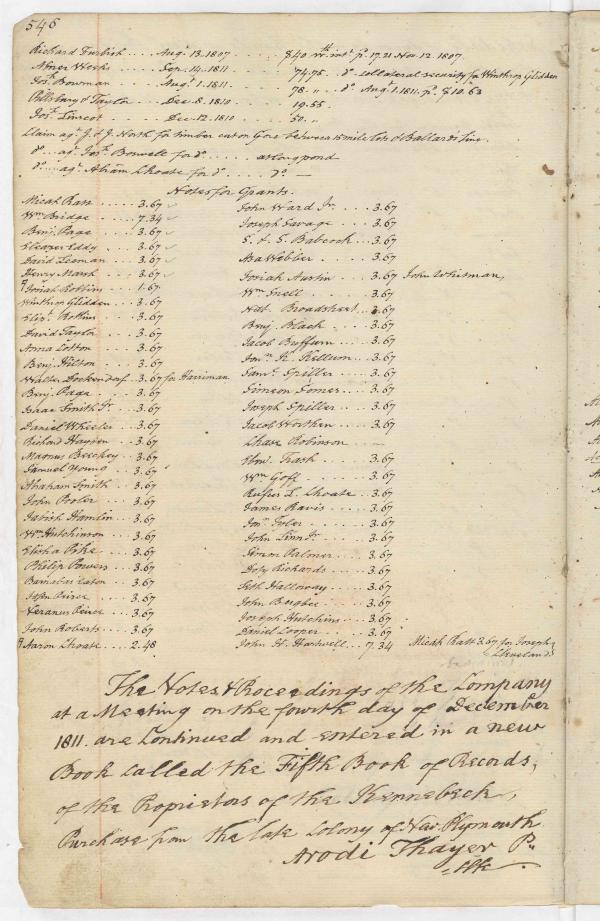 546
Richard Furbish .... Augt 13. 1807 .... $40 wth intt pr 17.21 Nov. 12. 1807.
Abner Weeks .... Sep. 14. 1811 .... 74.75. do collateral security for Winthrop Glidden
Jos. Bowman .... Augt 1. 1811 .... 78. " . do Augt 1. 1811. pr $10.63
Pillsbury & Taylor .... Dec. 8. 1810 .... 19.55.
Jos. Linscot .... Dec. 12. 1810 .... 50. "
Claim agt J. & J. North for timber cut on Gore between 15 mile lots & Ballard's line.
do .. agt Jos. Boswell for do .... at long pond
do .... agt Abram Choate for do .... do. —
Notes for Grants.
Micah Katt .... 3.67
Wm Bridge .... 7.34
Benj. Page .... 3.67
Eleazer Eddy .... 3.67
David Leeman .... 3.67
Henry Marsh .... 3.67
Josiah Rollins .... 1.67
Winthrop Glidden .. 3.67
Eliz. Rollins .... 3.67
David Taylor .... 3.67
Anna Cotton .... 3.67
Benj. Hilton .... 3.67
Walter Dockendorf .. 3.67 for Harriman
Benj. Page .... 3.67
Isaac Smith Jr. .. 3.67
Daniel Wheeler .. 3.67
Richard Hayden .... 3.67
Magnus Beechey .. 3.67
Samuel Young .... 3.67
Abraham Smith ... 3.67
John Pooler .... 3.67
Tabish Hamlin ... 3.67
Wm Hutchinson .... 3.67
Elisha Pike .... 3.67
Philip Powers .... 3.67
Barnabas Eaton .... 3.67
Peirce .... 3.67
Veranus Peirce .... 3.67
John Roberts .... 3.67
Aaron Choate .... 2.48
John Ward Jr. .. 3.67
Joseph Savage .... 3.67
S. & S. Babcock .. 3.67
Asa Webber .... 3.67
Josiah Austin .... 3.67 John Whitman,
Wm Snell .... 3.67
Nat. Broadstreet .. 3.67
Benj. Black .... 3.67
Jacob Buffum .... 3.67
Jona K. Kellum ... 3.67
Saml. Spiller .... 3.67
Simeon Somes .... 3.67
Joseph Spiller .... 3.67
Jacob Worthen .... 3.67
Chase Robinson .... —
Eben. Trask .... 3.67
Wm Goff .... 3.67
Rufus L. Choate .. 3.67
James Ravis .... 3.67
Jona Tyler .... 3.67
John Linn Jr. .... 3.67
Simon Palmer .... 3.67
Richards .... 3.67
Seth Halloway .... 3.67
John Burgbee .... 3.67
Joseph Hutchins .. 3.67
Daniel Cooper .... 3.67
John H. Hartwell .. 7.34 Micah Katt 3.67 for Joseph
Cleveland
The Votes & Proceedings of the Company
at a Meeting on the fourth day of December
1811. are Continued and entered in a new
Book called the Fifth Book of Records,
of the Proprietors of the Kennebeck,
Purchase from the late Colony of New Plymouth
Arodi Thayer Pr.
Clk.